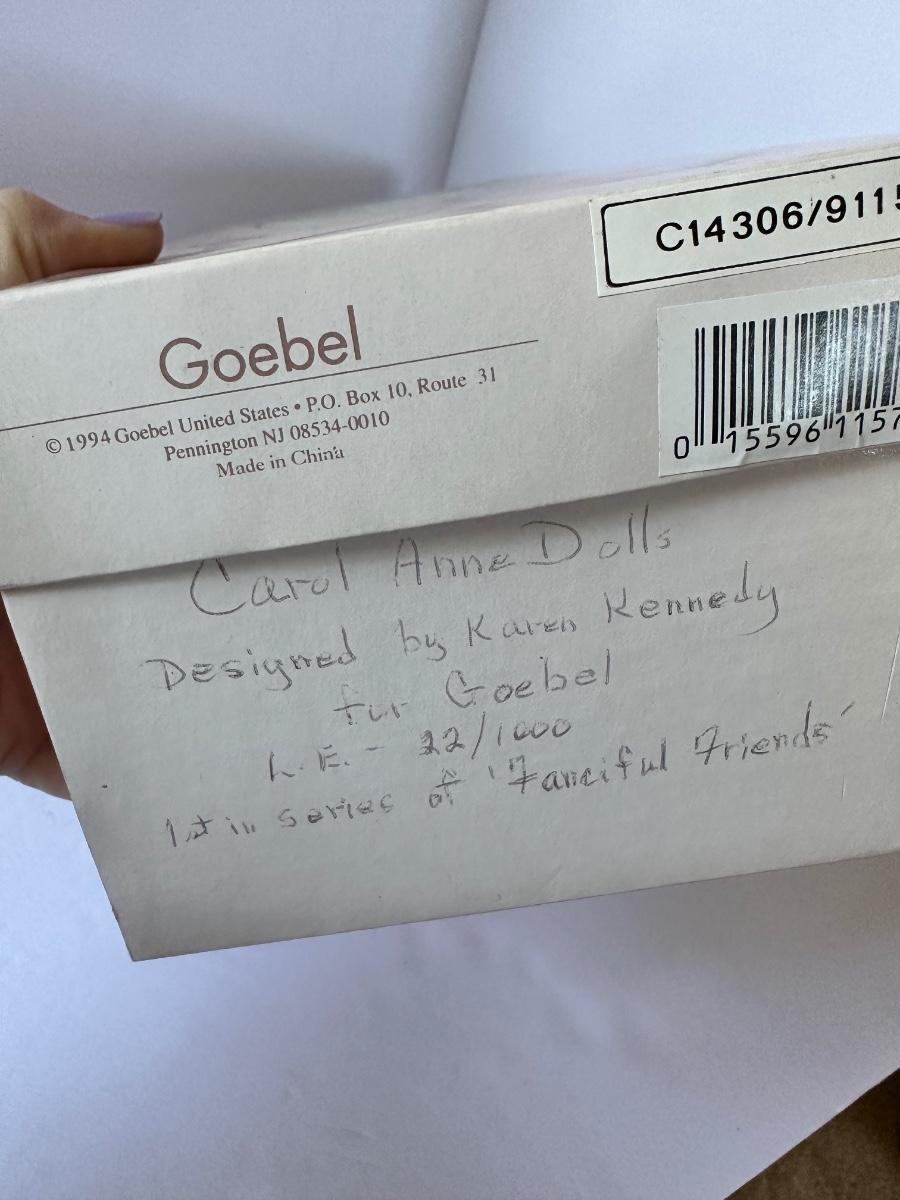 C14306/9115
Goebel
© 1994 Goebel United States • P.O. Box 10, Route 31
Pennington NJ 08534-0010
Made in China
0 15596 1157
Carol Anne Dolls
Designed by Karen Kennedy
for Goebel
L.E. - 22/1000
1st in series of 'Fanciful Friends'